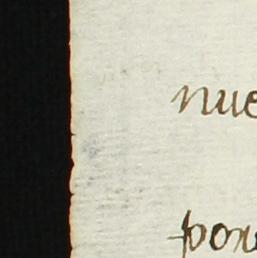 nue
por